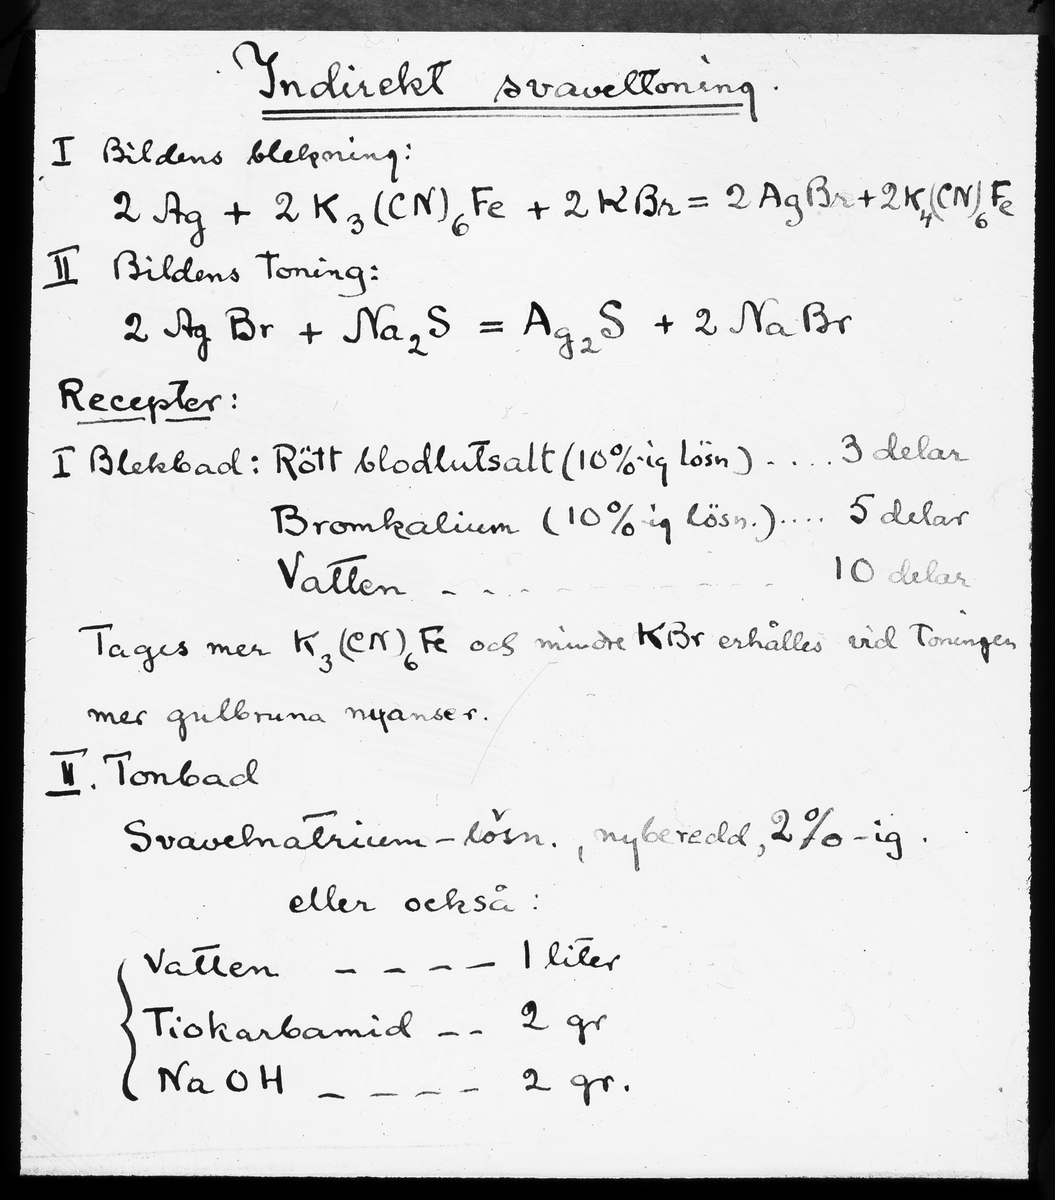 Indirekt svaveltoning.
I Bildens blekning:
2 Ag + 2 K₃(CN)₆Fe + 2 KBr = 2 AgBr + 2K₄(CN)₆Fe
II Bildens toning:
2 Ag Br + Na₂S = Ag₂S + 2 NaBr
Recepter:
I Blekbad: Rött blodlutsalt (10%-ig lösn) .... 3 delar
Bromkalium (10%-ig lösn.) .... 5 delar
Vatten - - - - - - - - - - 10 delar
Tages mer K₃(CN)₆Fe och mindre KBr erhålles vid toningen
mer gulbruna nyanser.
II. Tonbad
Svavelnatrium-lösn., nyberedd, 2%-ig.
eller också:
Vatten - - - - 1 liter
Tiokarbamid - - 2 gr
NaOH - - - - 2 gr.